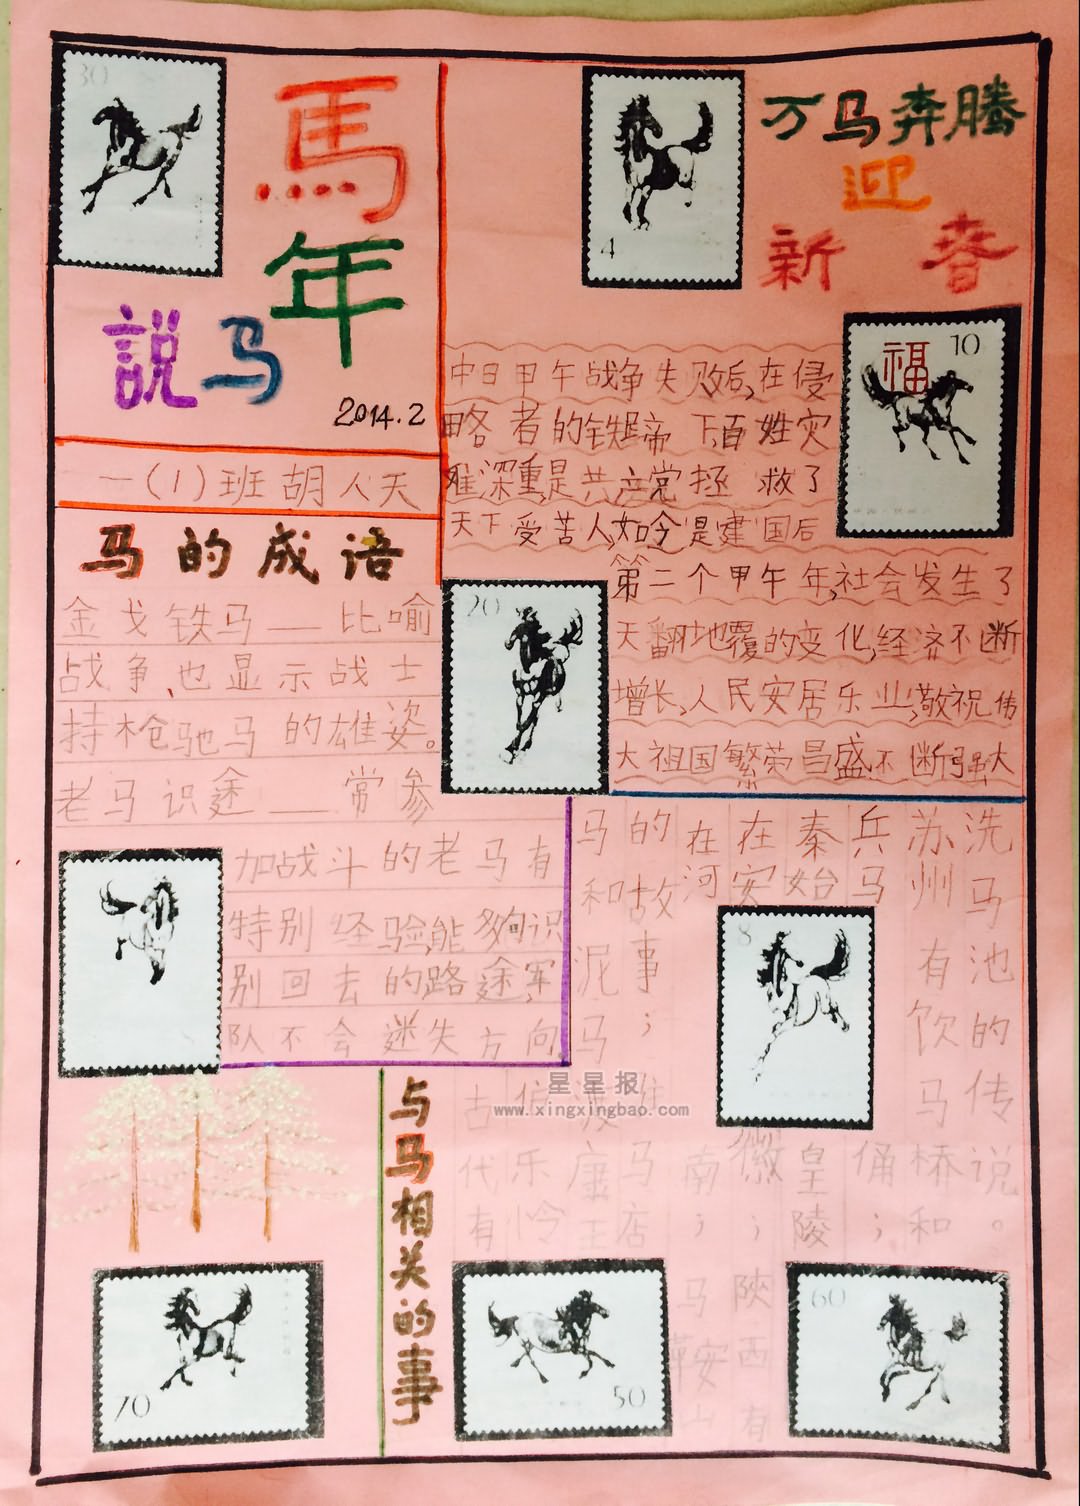 30
馬
年
説马
2014.2
一(1)班胡人天
马的成语
金戈铁马——比喻
战争,也显示战士
持枪驰马的雄姿。
老马识途——常参
加战斗的老马有
特别经验,能够识
别回去的路途,军
队不会迷失方向。
4
万马奔腾
迎
新春
福
10
中日甲午战争失败后,在侵
略者的铁蹄下,百姓灾
难深重,是共产党拯救了
天下受苦人,如今是建国后
第二个甲午年,社会发生了
天翻地覆的变化,经济不断
增长,人民安居乐业,敬祝伟
大祖国繁荣昌盛不断强大
20
8
与马相关的事
古代有
伯乐怜
马和泥马渡康王
的故事；驻马店
在河南；马鞍山
在安徽；陕西有
秦始皇陵
兵马俑；
苏州有饮马桥和
洗马池的传说。
星星报
www.xingxingbao.com
70
50
60